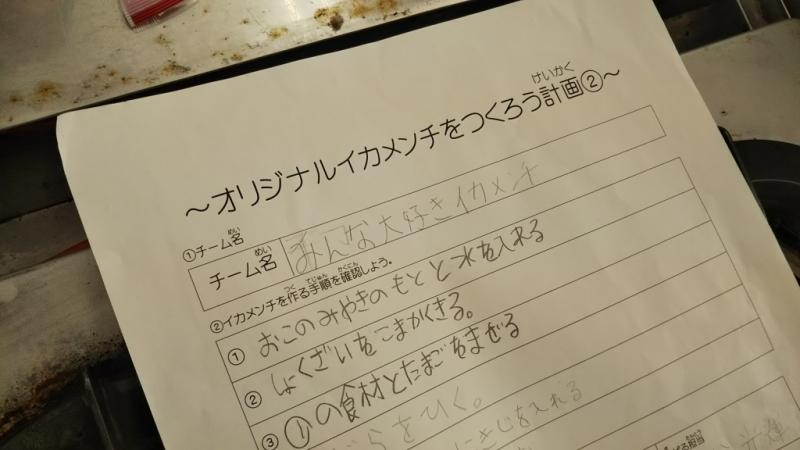 ～オリジナルイカメンチをつくろう計画②～
けいかく
①チーム名
めい
チーム名
めい
みんな大好きイカメンチ
②イカメンチを作る手順を確認しよう。
つく てじゅん かくにん
① おこのみやきのもとと水を入れる
② しょくざいをこまかくきる。
③ ①の食材とたまごをまぜる
らをひく。
きじを入れる
担当